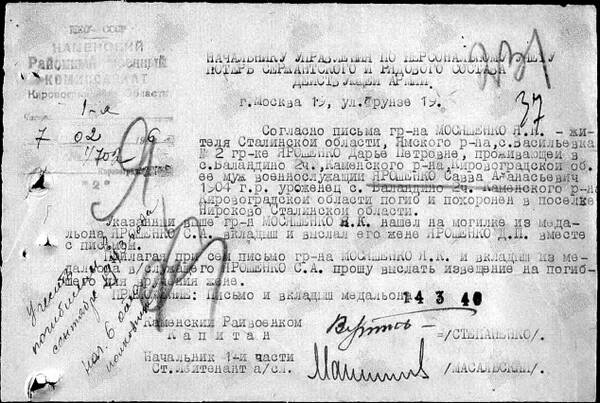 НКО - СССР
КАМЕНСКИЙ
Районный Военный
КОМИССАРИАТ
Кировоградской Области
1-я
7 02 1946
1/702
"2"
НАЧАЛЬНИКУ УПРАВЛЕНИЯ ПО ПЕРСОНАЛЬНОМУ УЧЕТУ
ПОТЕРЬ СЕРЖАНТСКОГО И РЯДОВОГО СОСТАВА
ДЕЙСТВУЮЩЕЙ АРМИИ.
г.Москва 19, ул.Фрунзе 19.
37
Согласно письма гр-на МОСЯШЕНКО Я.К. - жи-
теля Сталинской области, Ямского р-на, с.Васильевка
№ 2 гр-ке ЯРОШЕНКО Дарье Петровне, проживающей в
с.Баландино 2ч. Каменского р-на, Кировоградской об.
ее муж военнослужащий ЯРОШЕНКО Савва Афанасьевич
1904 г.р. уроженец с. Баландино 2ч. Каменского р-на
Кировоградской области погиб и похоронен в поселке
Нирково Сталинской области.
Указанный выше гр-н МОСЯШЕНКО Я.К. нашел на могилке из меда-
льона ЯРОШЕНКО С.А. вкладыш и выслал его жене ЯРОШЕНКО Д.П. вместе
с письмом.
Прилагая при сем письмо гр-на МОСЯШЕНКО Я.К. и вкладыш из ме-
дальона в/служащего ЯРОШЕНКО С.А. прошу выслать извещение на погиб-
шего для вручения жене.
ПРИЛОЖЕНИЕ: Письмо и вкладыш медальона
14 3 46
Каменский Райвоенком
Капитан =/СТЕПАНЕНКО/.
Начальник 1-й части
Ст. лейтенант а/сл. /МАСАЛЬСКИЙ/.
Учесть
погибшим в
сентябре 1943 года